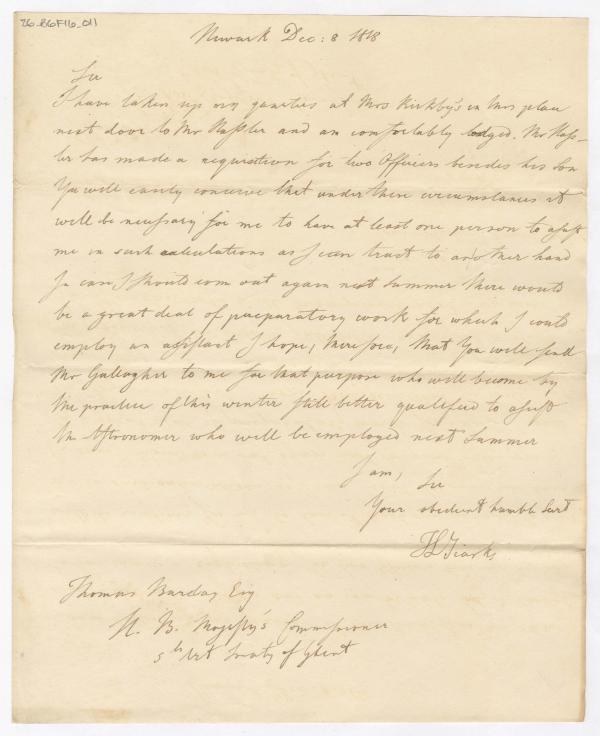 26_B6F16_011
Newark Dec: 8 1818
Sir
I have taken up my quarters at Mrs Kirkby's in this place
next door to Mr Hassler and am comfortably lodged. Mr Hass-
ler has made a requisition for two Officers besides his Son
You will easily conceive that under these circumstances it
will be necessary for me to have at least one person to assist
me in such calculations as I can trust to another hand
In case I should come out again next summer there would
be a great deal of preparatory work for which I could
employ an assistant I hope, therefore, that You will send
Mr Gallagher to me for that purpose who will become by
the practice of this winter still better qualified to assist
the Astronomer who will be employed next Summer
I am, Sir
Your obedient humble Servt
JL Tiarks
Thomas Barclay Esq
H. B. Majesty's Commissioner
5th Art Treaty of Ghent